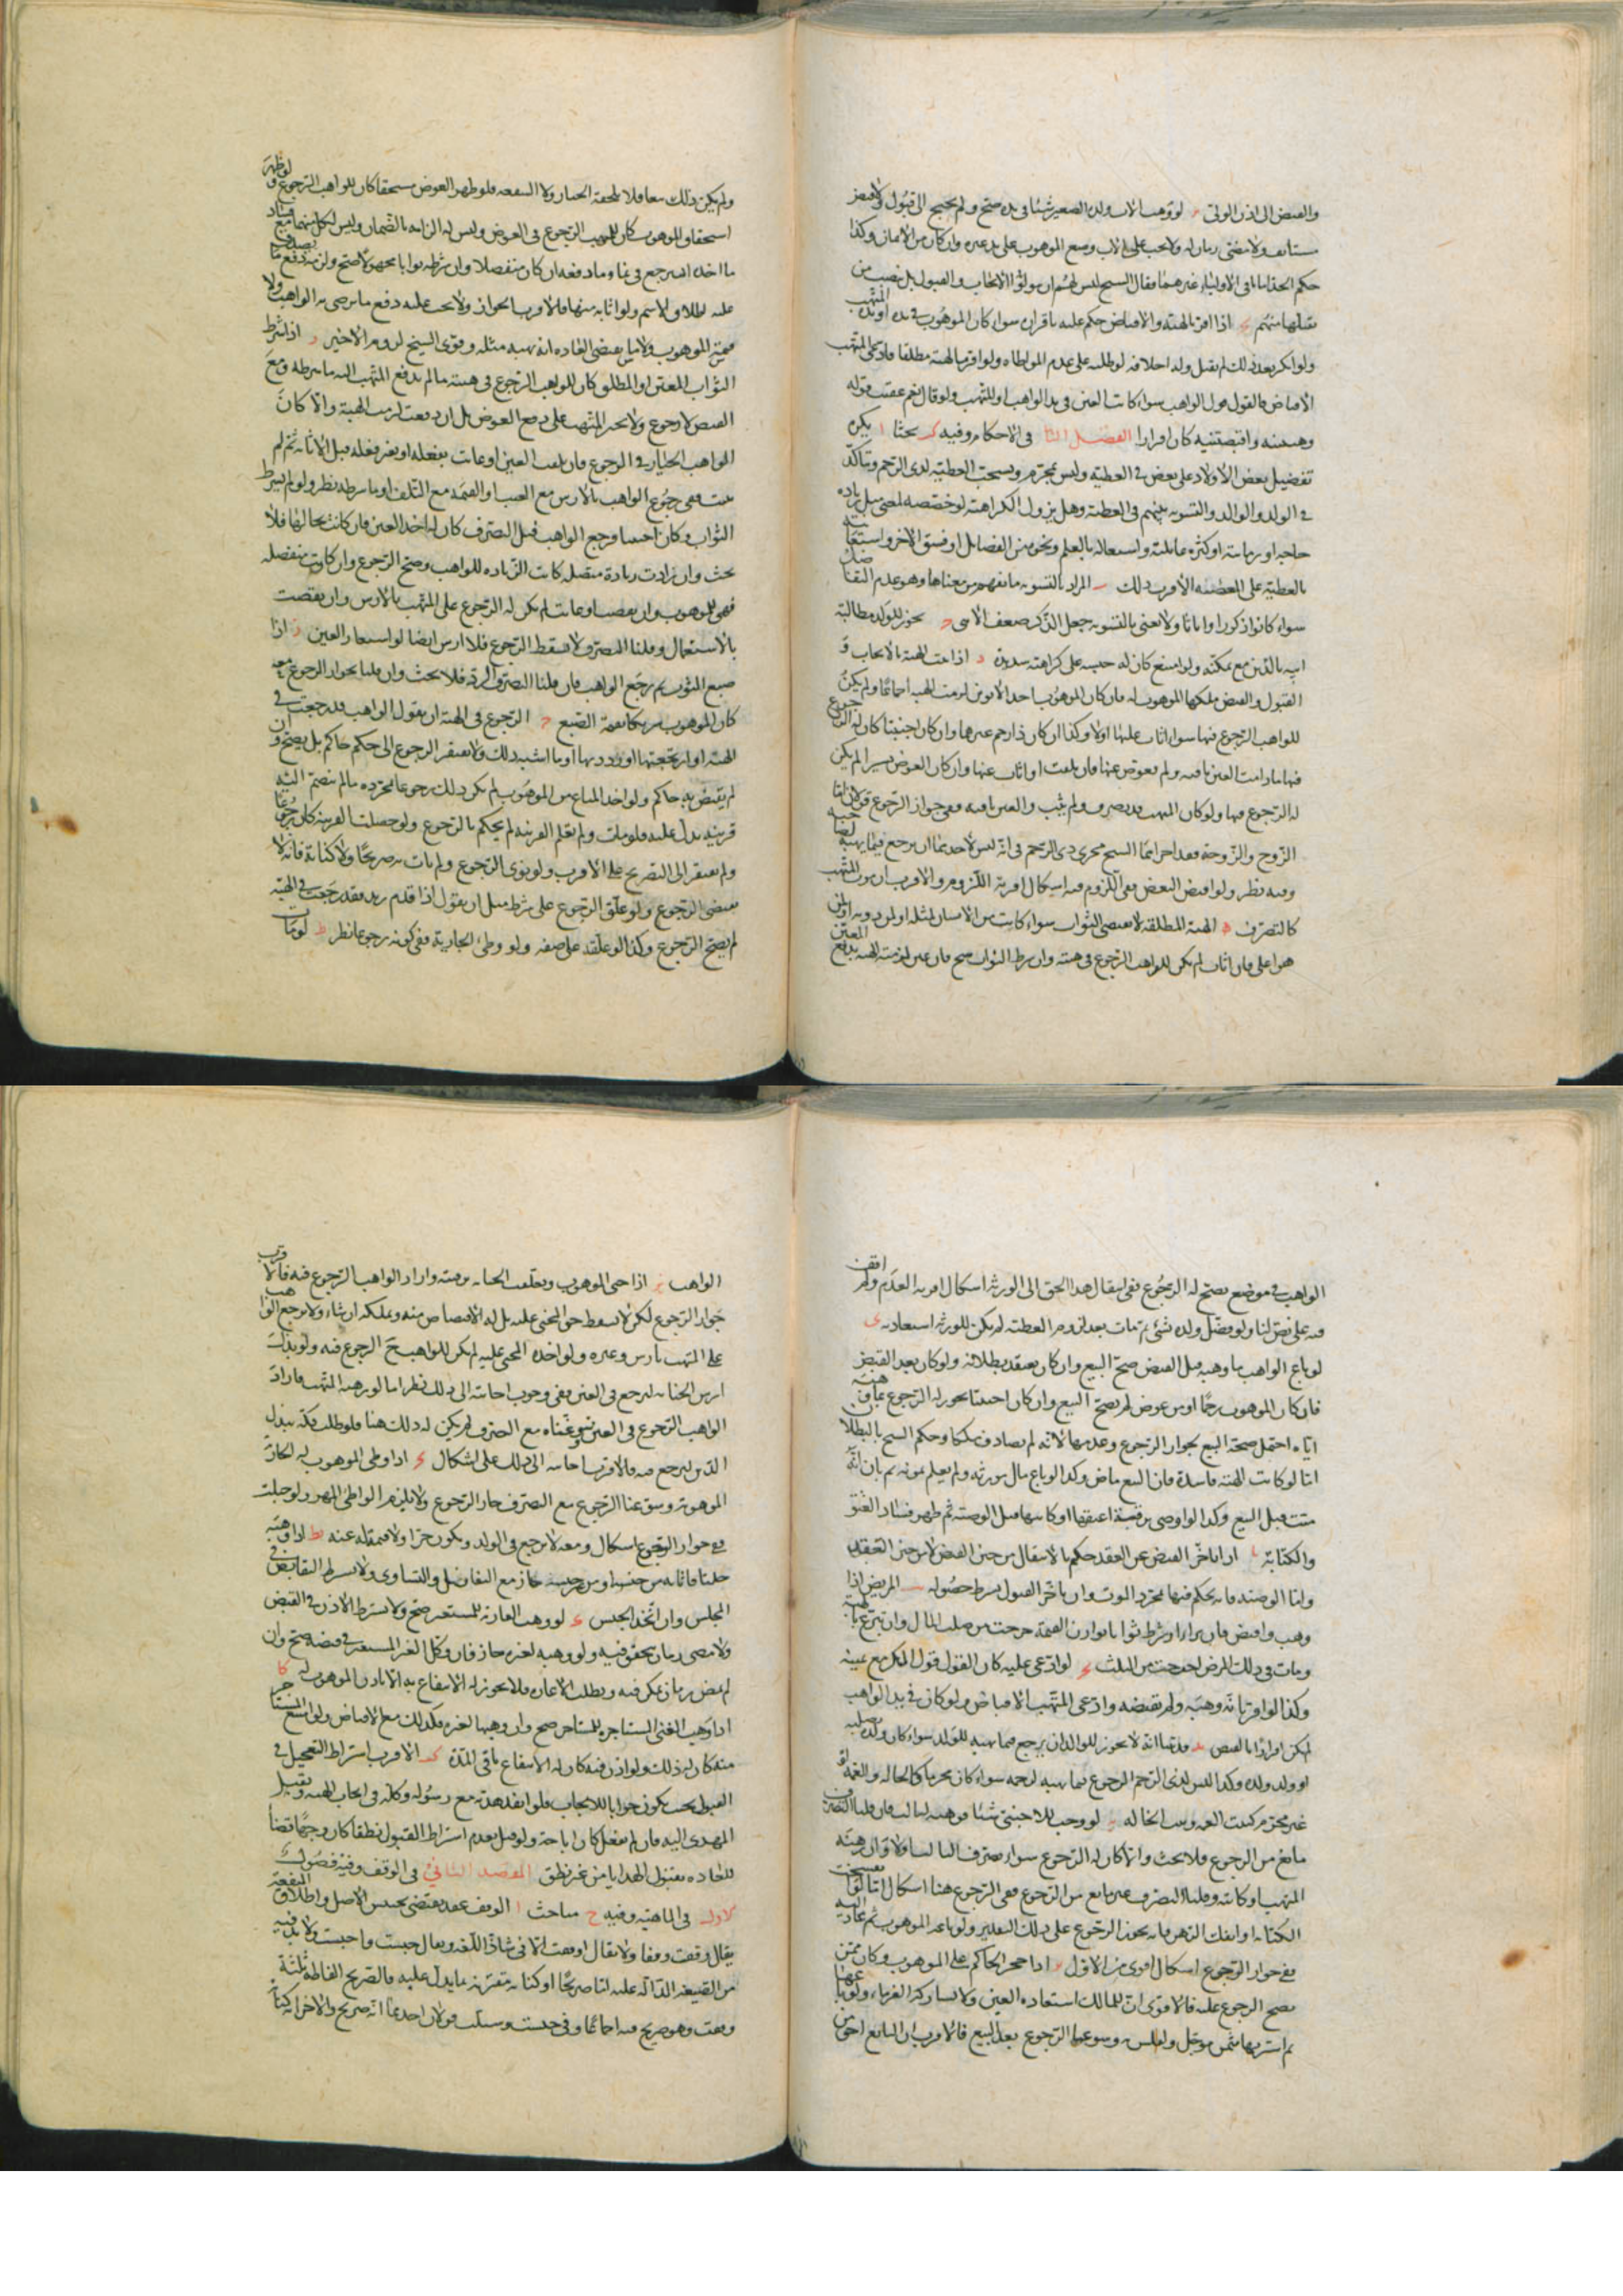 والقبض الى اذن الولي لو وهب الاب ولده الصغير شيئا في يده صح ولم يحتج الى قبول ولا قبض
مستانف ولا مضى زمان له ولا يجب على الاب وضع الموهوب على يد غيره وان كان من الاثمان وكذا
حكم الجد اما باقي الاولياء غيرهما فقال الشيخ ليس لهم ان يتولوا الايجاب والقبول بل ينصب من
يقبلها منهم اذا اقر بالهبة والاقباض حكم عليه باقراره سواء كان الموهوب في يده او يد المتهب
ولو انكر بعد ذلك لم يقبل وله احلافه لو طلبه على عدم المواطاه ولو اقر بالهبة مطلقا فادعى المتهب
الاقباض فالقول قول الواهب سواء كانت العين في يد الواهب او المتهب ولو قال نعم عقيب قوله
وهبتنيه واقبضتنيه كان اقرارا الفصل الثاني في الاحكام وفيه كد بحثا ا يكره
تفضيل بعض الاولاد على بعض في العطية وليس بمحرم ويستحب العطية لذي الرحم ويتاكد
في الولد والوالد والتسوية بينهم في العطية وهل يزول الكراهة لو خصصه لمعنى مثل زياده
حاجه او زمانته او كثرة عائلته واشتغاله بالعلم ونحوه من الفضائل او فسق الاخر واستعانته
بالعطية على المعصية الاقرب ذلك ب المراد بالتسوية ما يفهم من معناها وهو عدم التفاضل
سواء كانوا ذكورا او اناثا ولا نعني بالتسوية جعل الذكر ضعف الانثى ج يجوز للولد مطالبة
ابيه بالدين مع تمكنه ولو امتنع كان له حبسه على كراهية شديدة د اذا تمت الهبة بالايجاب و
القبول والقبض ملكها الموهوب له فان كان الموهوب احد الابوين لزمت الهبة اجماعا ولم يكن
للواهب الرجوع فيها سواء اثاب عليها اولا وكذا ان كان ذا رحم غيرها وان كان اجنبيا كان له الرجوع
فيها ما دامت العين باقية ولم يعوض عنها فان تلفت او اثاب عنها وان كان العوض يسيرا لم يكن
له الرجوع فيها ولو كان المتهب قد تصرف ولم يثب والعين باقية ففي جواز الرجوع قولان اما
الزوج والزوجة فقد اجراهما الشيخ مجرى ذي الرحم في انه ليس لاحدهما ان يرجع فيما يهبه لصاحبه
وفيه نظر ولو اقبض البعض ففي اللزوم فيه اشكال اقربه اللزوم والاقرب ان موت المتهب
كالتصرف ه الهبة المطلقة لا تقتضي الثواب سواء كانت من الانسان لمثله او لمن دونه او لمن
هو اعلى فان اثاب لم يكن للواهب الرجوع في هبته وان شرط الثواب صح فان عين لزمته الهبة بدفع المعين
ولم يكن ذلك بيعا فلا يلحقه الخيار ولا الشفعة فلو ظهر العوض مستحقا كان للواهب الرجوع ولو ظهر
استحقاق الموهوب كان للمتهب الرجوع في العوض وليس له الزامه بالضمان وليس لكل منهما مع فساد
ما اخذه ان يرجع في نماء وما دفعه ان كان منفصلا وان شرطه ثوابا مجهولا صح ولزمه دفع ما يصدق
عليه اطلاق الاسم ولو اثابه منها فالاقرب الجواز ولا يجب عليه دفع ما يرضى به الواهب ولا
قيمة الموهوب ولا ما يقتضي العاده انه يهبه مثله وقوى الشيخ لزوم الاخير و اذا شرط
الثواب المعين او المطلق كان للواهب الرجوع في هبته ما لم يدفع المتهب اليه ما شرطه ومع
القبض لا رجوع ولا يجبر المتهب على دفع العوض بل ان دفعت لزمت الهبة والا كان
الواهب الخيار في الرجوع فان تلفت العين او عابت بفعله او بغير فعله قبل الاثابة ثم لم
يثب ففي رجوع الواهب بالارش مع العيب او القيمة مع التلف او ما شرطه نظر ولو لم يشترط
الثواب وكان اجنبيا ورجع الواهب قبل التصرف كان له اخذ العين فان كانت بحالها فلا
بحث وان زادت زيادة متصلة كانت الزيادة للواهب وصح الرجوع وان كانت منفصلة
فهي للموهوب وان نقصت او عابت لم يكن له الرجوع على المتهب بالارش وان نقصت
بالاستعمال وقلنا التصرف لا يسقط الرجوع فلا ارش ايضا لو استعار العين ز اذا
صبغ الثوب ثم رجع الواهب فان قلنا التصرف الرد فلا بحث وان قلنا بجواز الرجوع معه
كان الموهوب شريكا بقيمة الصبغ ح الرجوع في الهبة ان يقول الواهب قد رجعت في
الهبة او ارتجعتها او رددتها او ما اشبه ذلك ولا يفتقر الرجوع الى حكم حاكم بل يصح وان
لم يقض به حاكم ولو اخذ المتاع من الموهوب لم يكن ذلك رجوعا بمجرده ما لم ينضم اليه
قرينة يدل عليه فلو مات ولم يعلم القرينة لم يحكم بالرجوع ولو حصلت القرينة كان رجوعا
ولم يفتقر الى التصريح على الاقرب ولو نوى الرجوع ولم يات به صريحا ولا كناية فانه لا
يقتضي الرجوع ولو علق الرجوع على شرط مثل ان يقول اذا قدم زيد فقد رجعت في الهبة
لم يصح الرجوع وكذا لو علقه على صفه ولو وطئ الجارية ففي كونه رجوعا نظر ط لو مات
الواهب في موضع يصح له الرجوع ففي انتقال هذا الحق الى الورثة اشكال اقربه العدم ولم اقف
فيه على نص لنا ولو فضل ولده بشئ ثم مات بعد لزوم العطية لم يكن للورثة استعادته ى
لو باع الواهب ما وهبه قبل القبض صح البيع وان كان يعتقد بطلانه ولو كان بعد القبض
فان كان الموهوب رحما او من عوض لم يصح البيع وان كان اجنبيا يجوز له الرجوع فيما وهبه
اياه احتمل صحة البيع لجواز الرجوع وعدمها لانه لم يصادف ملكا وحكم الشيخ بالبطلان
اما لو كانت الهبة فاسدة فان البيع ماض وكذا لو باع مال مورثه ولم يعلم بموته ثم بان انه
ميت قبل البيع وكذا لو اوصى برقبة اعتقها او كاتبها قبل الوصية ثم ظهر فساد العتق
والكتابة يا اذا تاخر القبض عن العقد حكم بالانتقال من حين القبض لا من حين العقد
واما الوصية فانه يحكم فيها بمجرد الموت وان تاخر القبول بشرط حصوله يب المريض اذا
وهب واقبض فان برا او شرط ثوابا يوازن القيمة خرجت من صلب المال وان تبرع بالهبة
ومات في ذلك المرض اخرجت من الثلث يج لو ادعى عليه كان القول قول المنكر مع يمينه
وكذا لو اقر بانه وهبه ولم يقبضه وادعى المتهب الاقباض ولو كان في يد الواهب
لم يكن اقرارا بالقبض يد قد بينا انه لا يجوز للوالد ان يرجع فيما يهبه للولد سواء كان ولده لصلبه
او ولد ولده وكذا ليس لذي الرحم الرجوع فيما يهبه لرحمه سواء كان محرما كالخالة والعمة او
غير محرم كبنت العمه وبنت الخاله يه لو وهب للاجنبي شيئا فوهبه لثالث فان قلنا التصرف
مانع من الرجوع فلا بحث والا كان له الرجوع سواء تصرف الثالث اولا ولو ان رهنه
المتهب او كاتبه وقلنا التصرف غير مانع من الرجوع ففي الرجوع هنا اشكال اما لو انفسخت
الكتابة او انفك الرهن فانه يجوز الرجوع على ذلك التقدير ولو باعه الموهوب ثم عاد اليه
ففي جواز الرجوع اشكال اقوى من الاول يو اذا حجر الحاكم على الموهوب وكان ممن
يصح الرجوع عليه فالاقوى ان للمالك استعاده العين ولا تشاركه الغرماء ولو باعها
ثم اشتريها بثمن مؤجل وافلس وسوغنا الرجوع بعد البيع فالاقرب ان البائع احق من
الواهب يز اذا جنى الموهوب وتعلقت الجناية برقبته واراد الواهب الرجوع فيه فالاقرب
جواز الرجوع لكن لا يسقط حق المجني عليه بل له الاقتصاص منه وتملكه ان شاء ولا يرجع الواهب
على المتهب بارش وغيره ولو اخذه المجني عليه لم يكن للواهب ح الرجوع فيه ولو بذل
ارش الجناية ليرجع في العين ففي وجوب اجابته الى ذلك نظر اما لو رهنه المتهب فاراد
الواهب الرجوع في العين وسوغناه مع التصرف لم يكن له ذلك هنا فلو طلب فكه ببذل
الدين ليرجع فيه فالاقرب اجابته الى ذلك على اشكال يح اذا وطى الموهوب له الجارية
الموهوبة وسوغنا الرجوع مع التصرف جاز الرجوع ولا يلزم الواطى المهر ولو حبلت
ففي جواز الرجوع اشكال ومعه لا يرجع في الولد ويكون حرا ولا قيمة له عنه يط اذا وهبه
حليا فاثابه من جنسه او من غير جنسه جاز مع التفاضل والتساوى ولا يشترط التقابض في
المجلس وان اتحد الجنس ك لو وهب العارية للمستعير صح ولا يشترط الاذن في القبض
ولا مضى زمان يتحقق فيه ولو وهبه لغيره جاز فان وكل الغير المستعير في قبضه صح وان
لم يمض زمان يمكن فيه وبطلت الاعاره فلا يجوز له الانتفاع به الا باذن الموهوب له كا
اذا وهب الشئ المستاجر للمستاجر صح وان وهبها لغيره فكذلك مع الاقباض ولو امتنع المستاجر
منه كان له ذلك ولو اذن فيه كان له الانتفاع باقي المدة كب الاقرب اشتراط التعجيل في
القبول بحيث يكون جوابا للايجاب فلو انفذ هديه مع رسوله وكله في ايجاب الهبه وتقبيل
المهدى اليه فان لم يفعل كان اباحة ولو قيل بعدم اشتراط القبول نطقا كان وجها قضاء
للعاده بقبول الهدايا من غير نطق المقصد الثاني في الوقف وفيه فصول
الاول في الماهية وفيه ح مباحث ا الوقف عقد يقتضي تحبيس الاصل واطلاق المنفعة
يقال وقفت وقفا ولا يقال اوقفت الا في شاذ اللغه ويقال حبست واحبست ولا بد فيه
من الصيغه الدالة عليه اما صريحا او كناية مقترنة بما يدل عليه فالصريح الفاظه ثلثة
وقفت وهو صريح فيه اجماعا وفي حبست وسبلت قولان احدهما انه صريح والاخر انه كناية